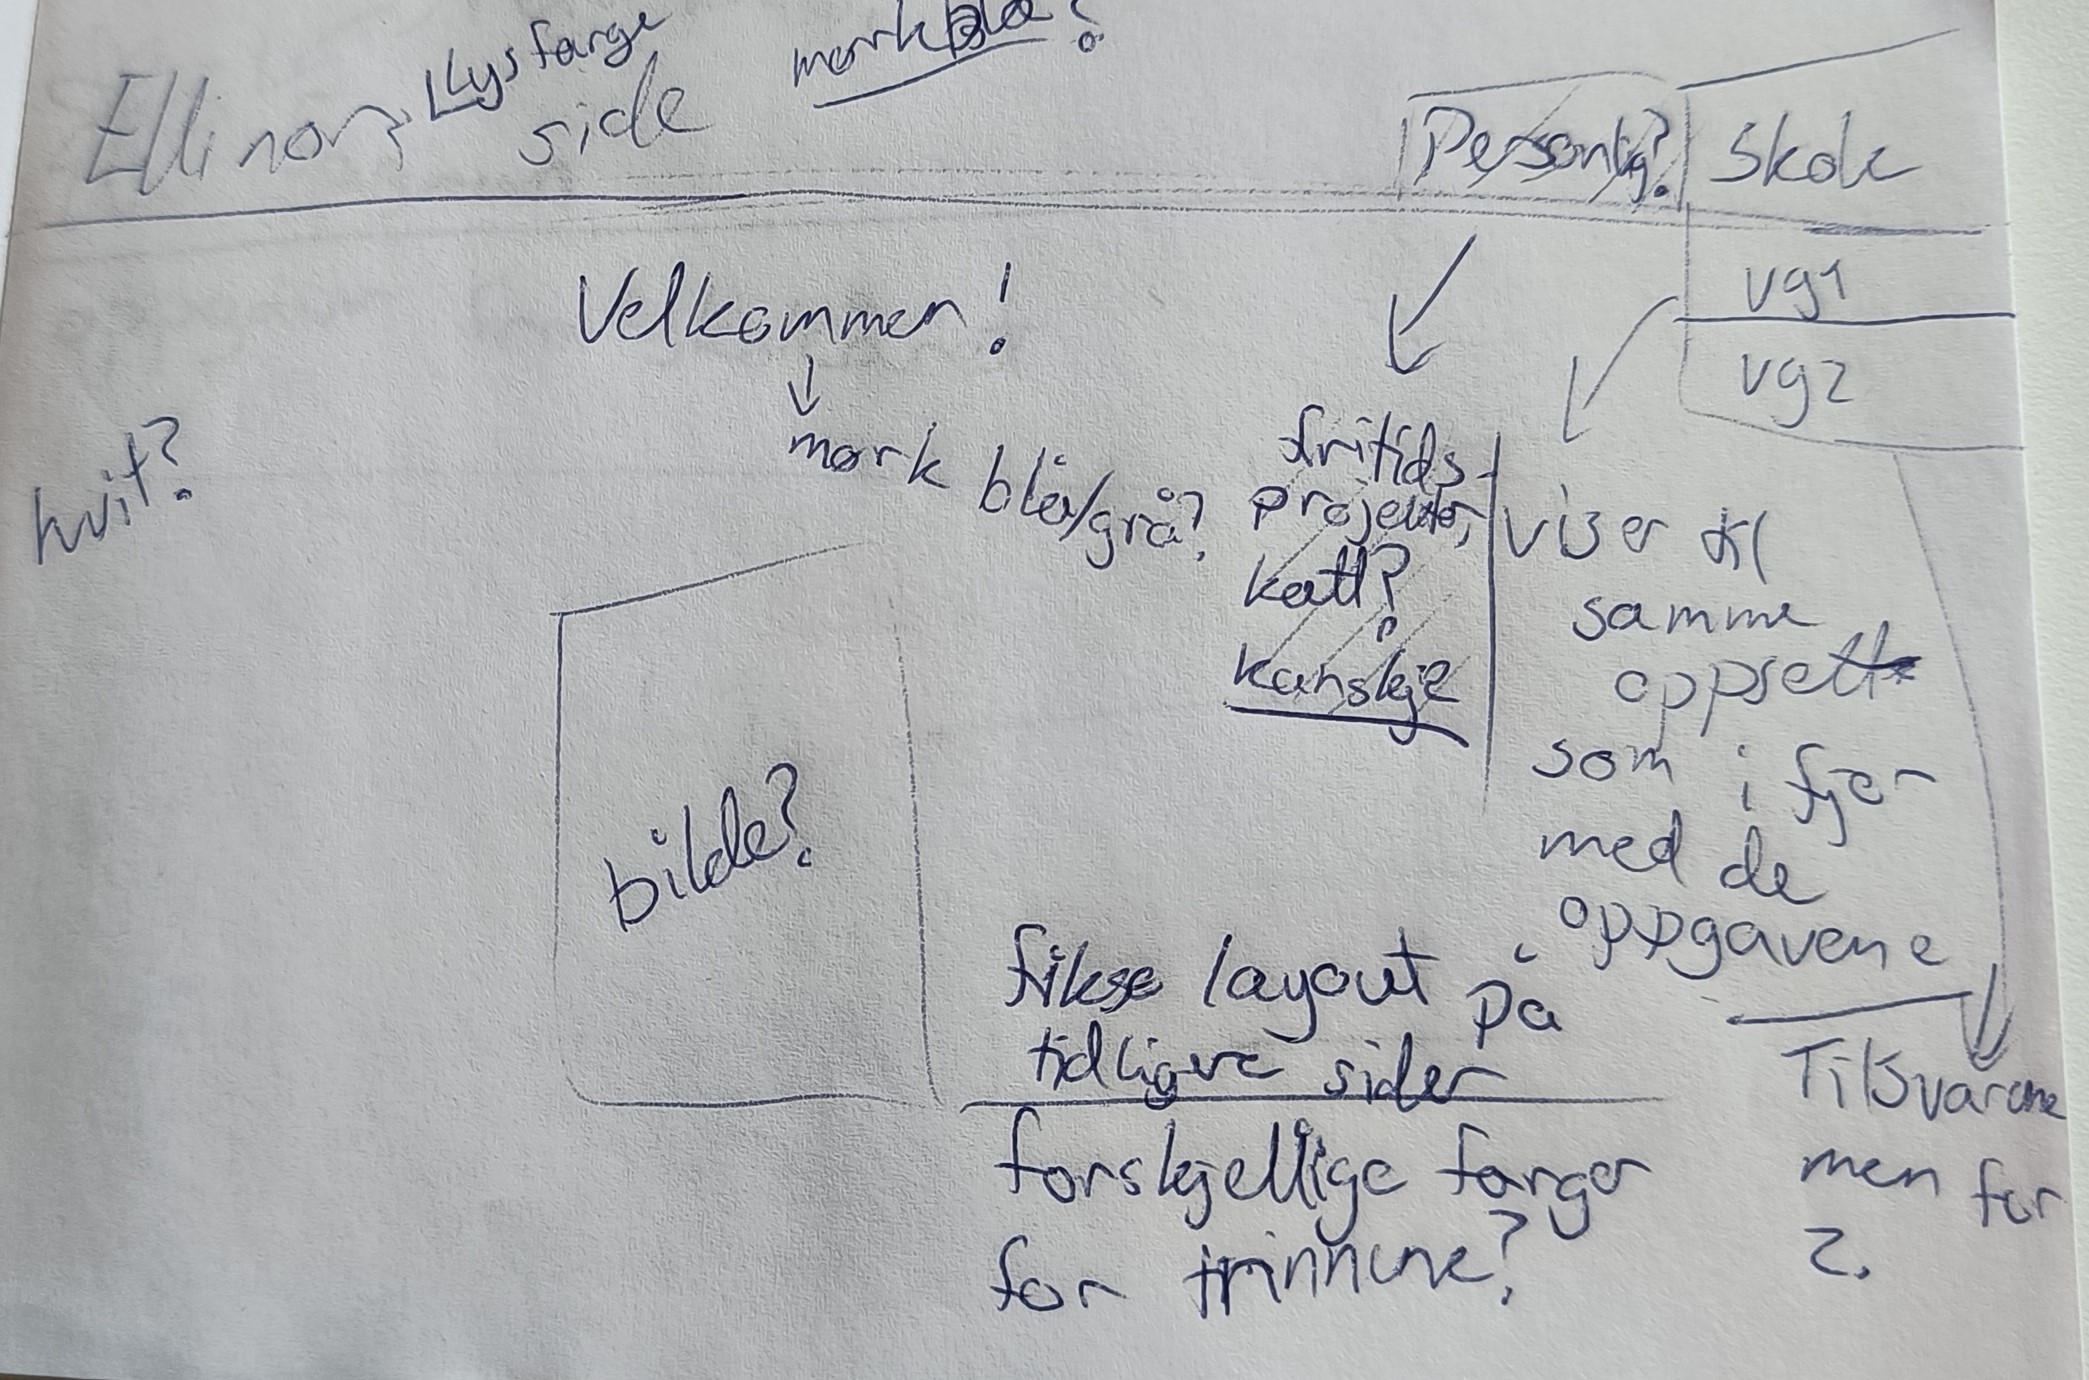 Ellinors side
Lys farge
mørkblå?
Personlig?
Skole
vg1
vg2
Velkommen!
mørk blå/grå?
hvit?
fritids-
projekter,
katt?
kanskje
viser til
samme
oppsett
som i fjor
med de
oppgavene
bilde?
fikse layout på
tidligere sider
forskjellige farger
for trinnene?
Tilsvarene
men for
2.